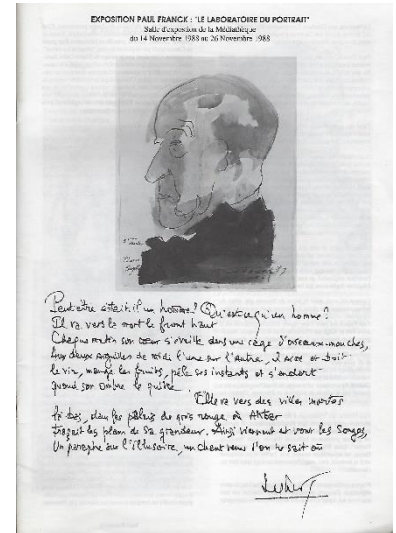 EXPOSITION PAUL FRANCK : "LE LABORATOIRE DU PORTRAIT"
Salle d'exposition de la Médiathèque
du 14 Novembre 1988 au 26 Novembre 1988
Peut-être était-il un homme? Qu'est-ce qu'un homme?
Il va vers le mort le front haut
Chaque matin son cœur s'éveille dans une cage d'oiseaux-mouches,
Aux deux aiguilles de midi l'une sur l'autre, il and boit
le vin, mange les fruits, pèle ses instants et s'endort
quand son ombre le quitte
Elle va vers des villes mortes
là-bas, dans les palais de grès rouge
traçait les plans de sa grandeur. Ainsi viennent et vont les songes,
Un paraphe sur l'illusoire, un chant venu l'on ne sait où